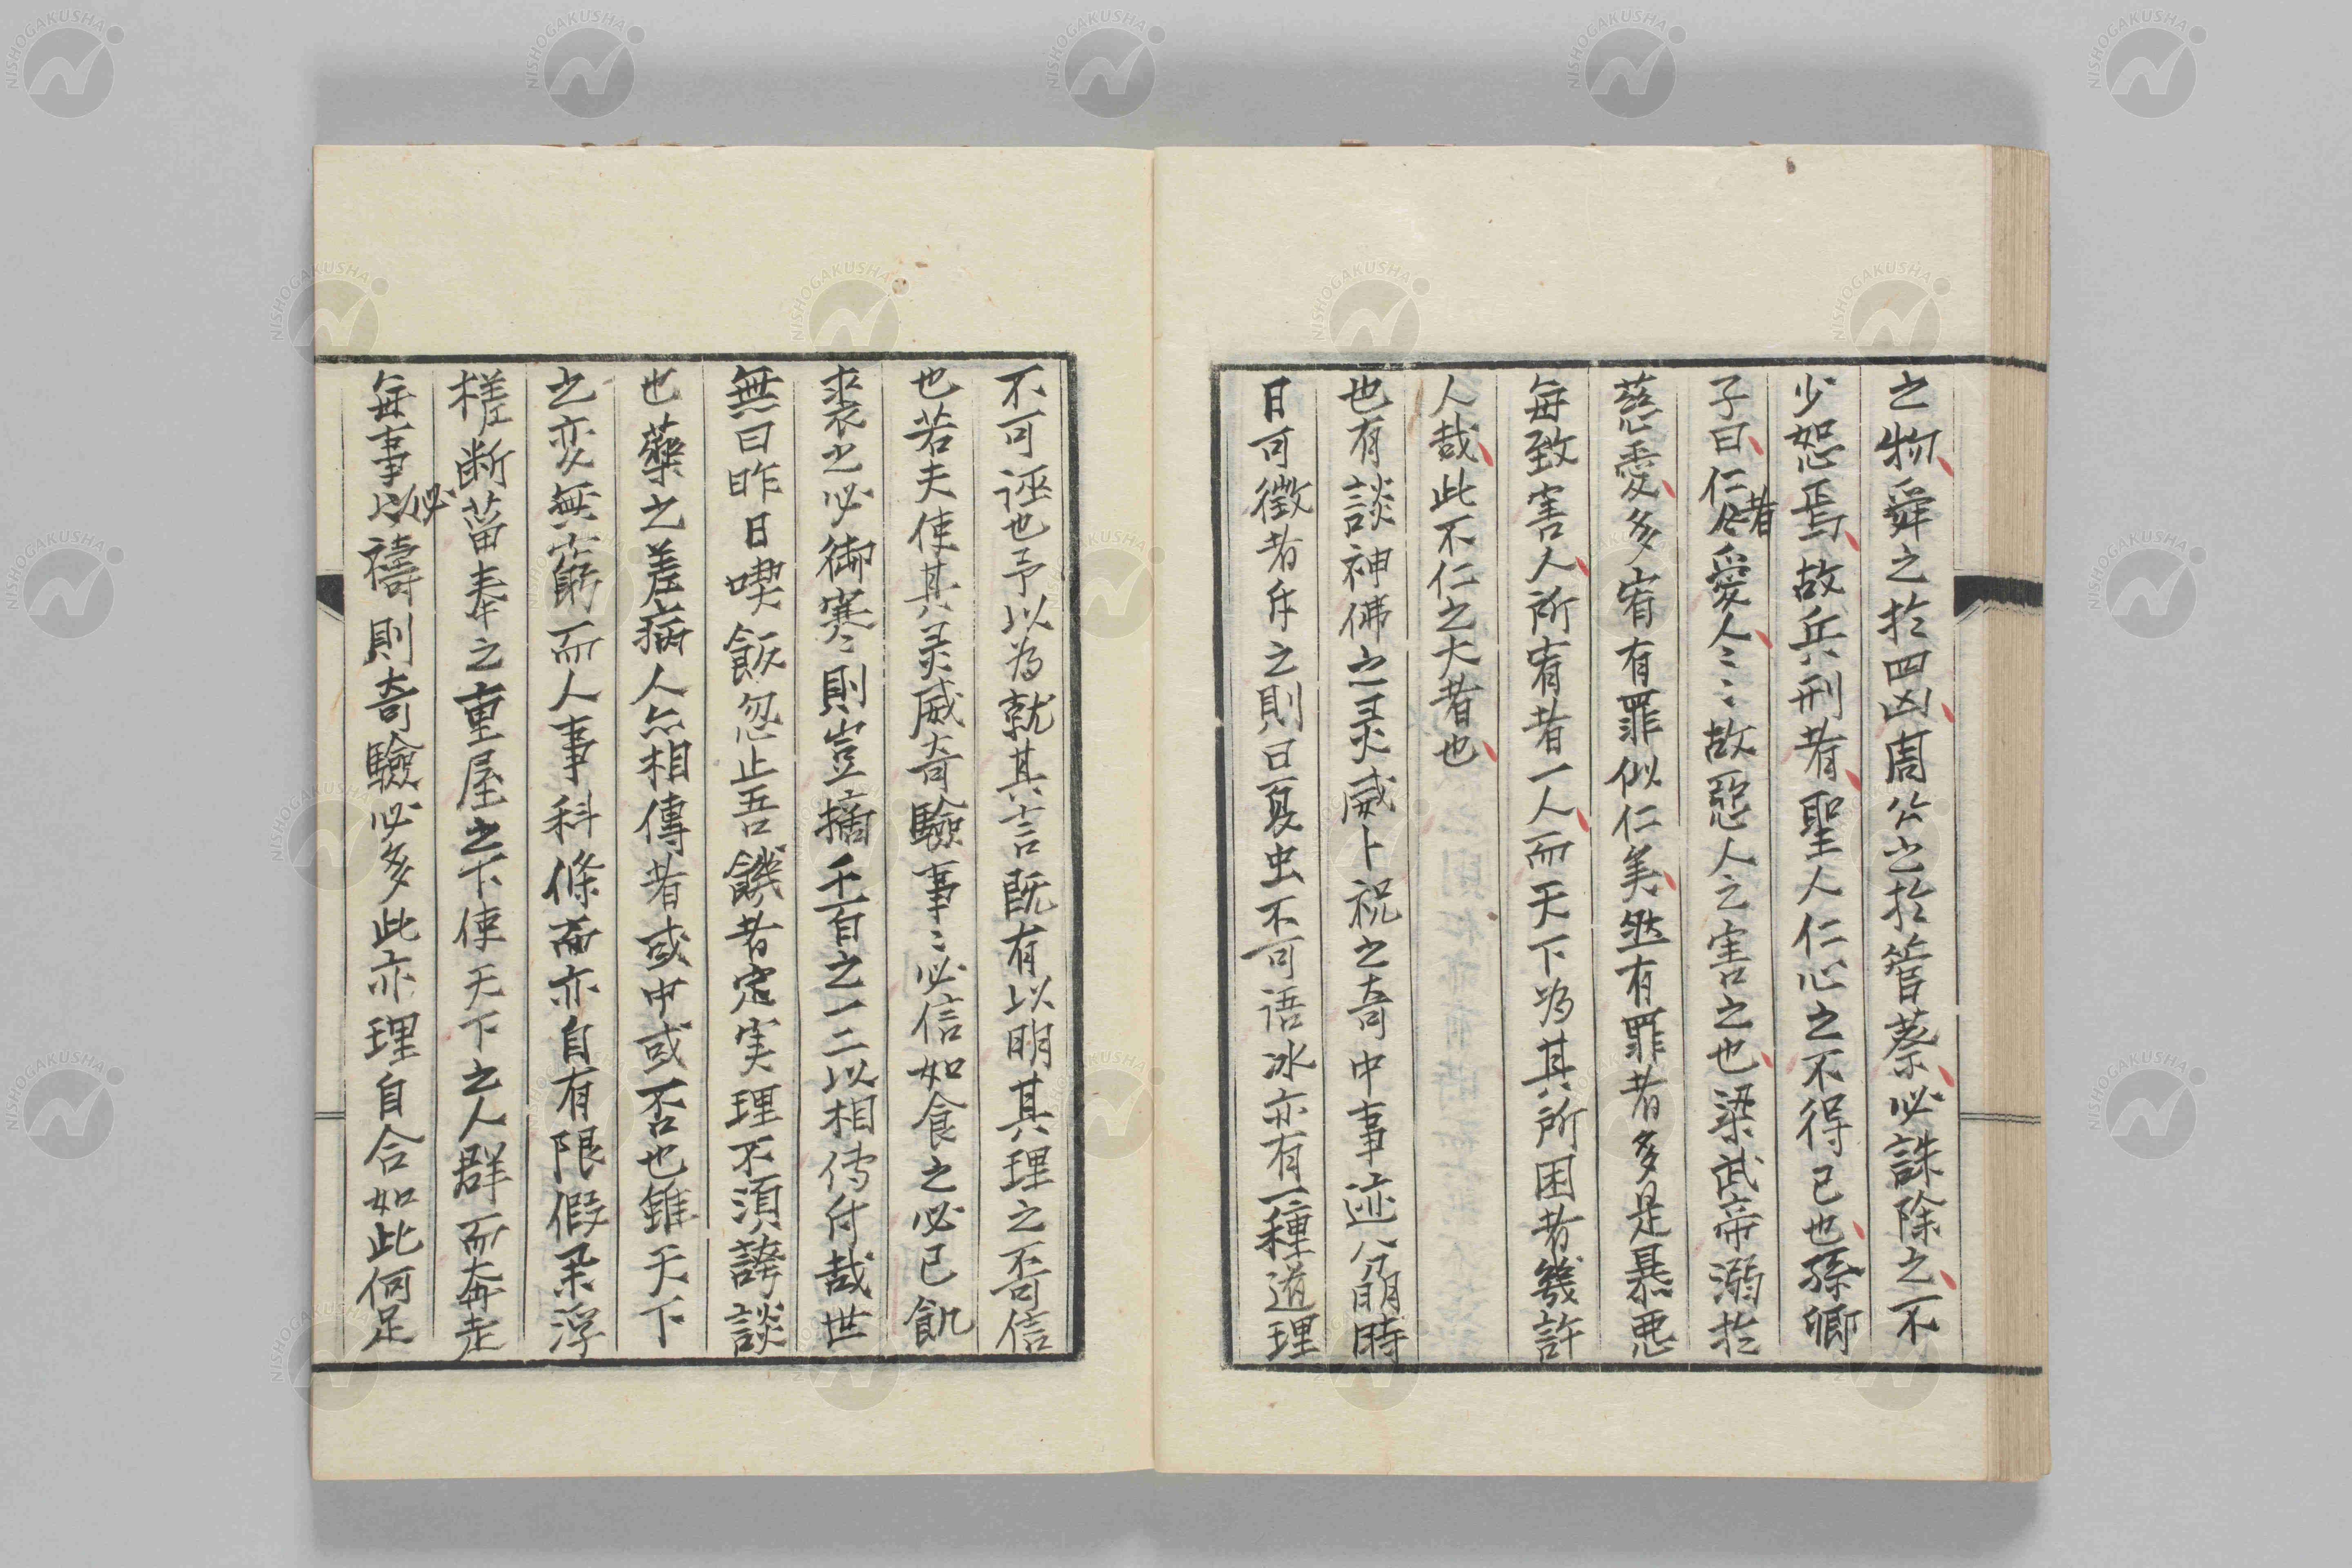 之物舜之於四凶周公之於管蔡必誅除之不
少恕焉故兵刑者聖人仁心之不得已也孫卿
子曰仁者愛人〻〻故惡人之害之也梁武帝溺於
慈愛多宥有罪似仁美然有罪者多是暴悪
毎致害人所宥者一人而天下為其所困者幾許
人哉此不仁之大者也
也有談神佛之灵威卜祝之奇中事迹分明時
日可徴者斥之則曰夏虫不可语冰亦有一種道理
不可誣也予以為就其言既有以明其理之不可信
也若夫使其灵威奇驗事〻必信如食之必已飢
裘之必御寒則豈摘千百之一二以相傳付哉世
無曰昨日喫飯忽止吾饑者定実理不須誇談
也藥之差病人亦相傳者或中或不也雖天下
之変無窮而人事科條亦自有限假令浮
槎断菑奉之重屋之下使天下之人群而奔走
毎事必禱則奇驗必多此亦理自合如此何足
NISHOGAKUSHA